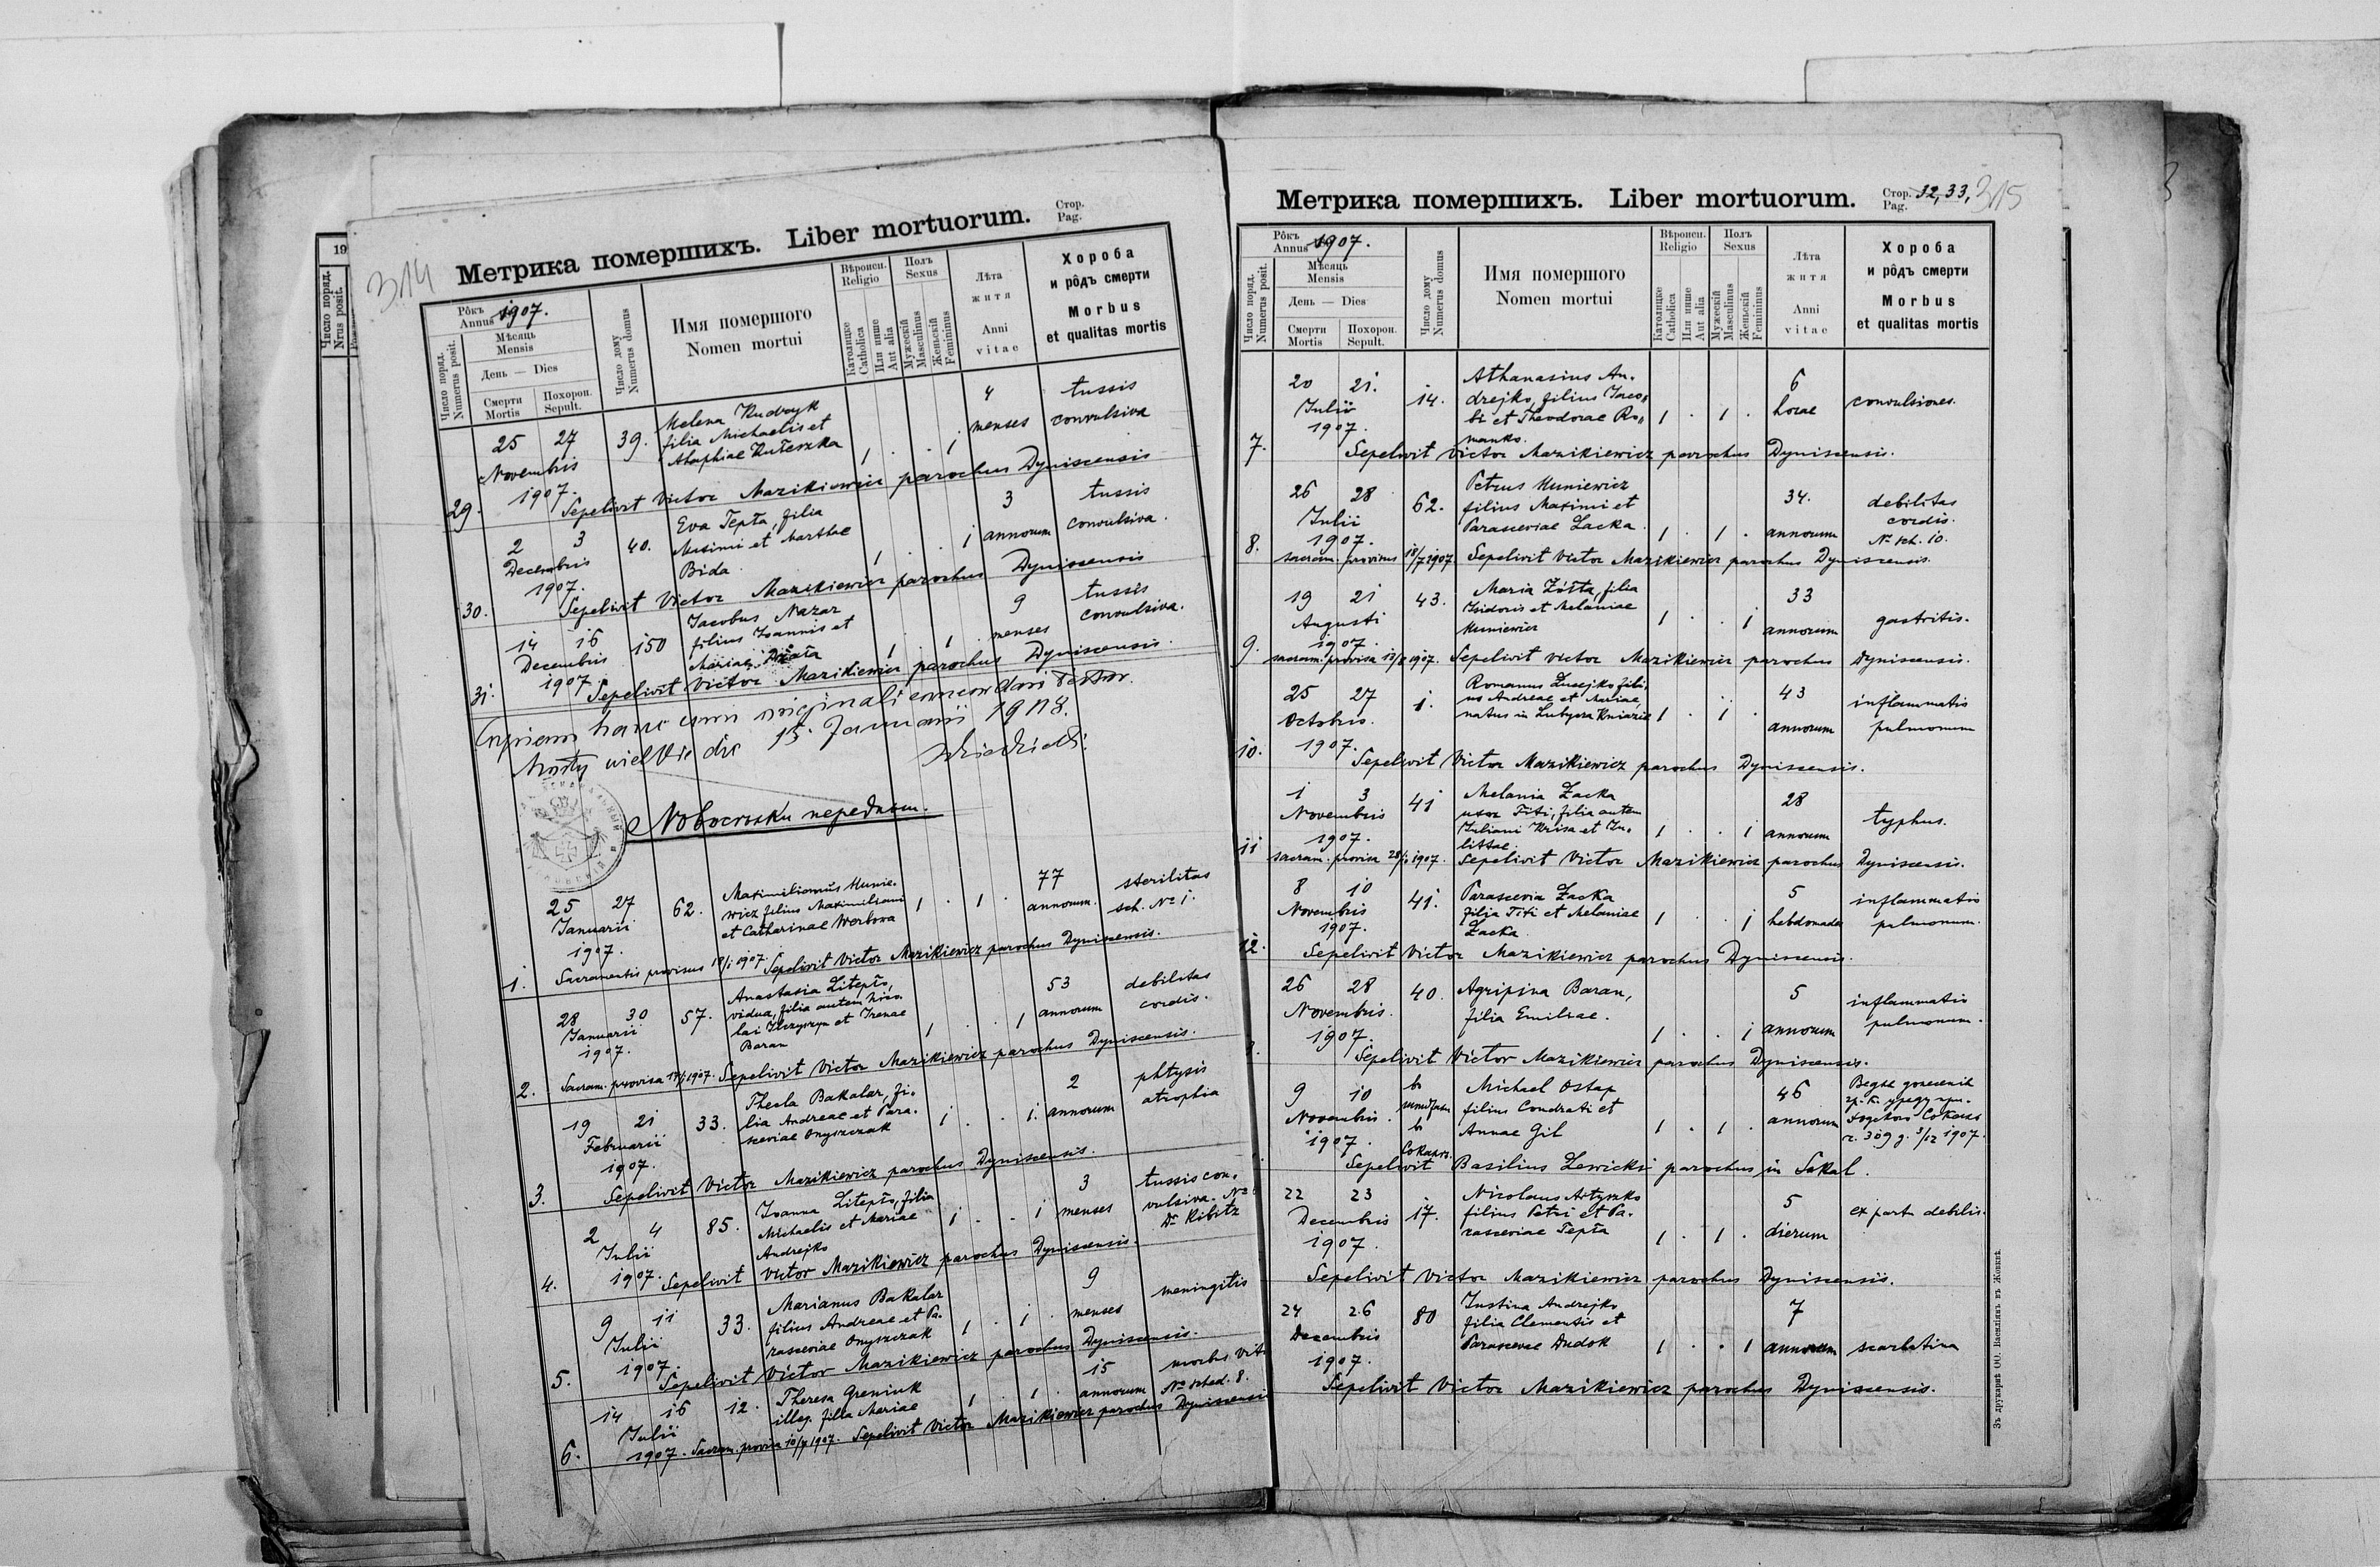 314
Метрика помершихъ. Liber mortuorum.
Стор.
Pag.
Рôкъ
Annus 1907.
Мѣсяць
Mensis
День — Dies
Смерти
Mortis
Похорон.
Sepult.
Число поряд.
Numerus posit.
Число дому
Numerus domus
Имя помершого
Nomen mortui
Вѣроисп.
Religio
Католицке
Catholica
Или инше
Aut alia
Полъ
Sexus
Мужескій
Masculinus
Женьскій
Femininus
Лѣта
житя
Anni
vitae
Хороба
и рôдъ смерти
Morbus
et qualitas mortis
25 27 39. Helena Kudryk 4 tussis
Novembris filia Michaelis et menses convulsiva
1907. Ahaphiae Kuleszka 1 . . 1
29. Sepelivit Victor Mazikiewicz parochus Dyniscensis
2 3 40. Eva Tepła, filia 3 tussis
Decembris Maximi et Marthae annorum convulsiva.
1907. Bida 1 . . 1
30. Sepelivit Victor Mazikiewicz parochus Dyniscensis
14 16 150 Jacobus Nazar 9 tussis
Decembris filius Joannis et menses convulsiva.
1907 Mariae 1 . 1 .
31. Sepelivit Victor Mazikiewicz parochus Dyniscensis.
Copiam hanc cum originali concordari testor.
Mosty wielkie die 15. Januarii 1908.
Новосѣлки передном.
25 27 62. Maximilianus Munie-
Januarii wicz filius Maximiliani 1 . 1 . 77 annorum. sterilitas
1907. et Catharinae Werbowa sch. No 1.
1. Sacramentis provisus 18/1 1907. Sepelivit Victor Mazikiewicz parochus Dyniscensis.
28 30 57. Anastasia Litepło, 53 debilitas
Januarii vidua, filia autem Nico- annorum cordis.
1907. lai et Irenae 1 . . 1
Baran
2. Sacram. provisa 17/1 1907. Sepelivit Victor Mazikiewicz parochus Dyniscensis.
19 21 33. Thecla Bakalar, fi- 2 phtysis
Februarii lia Andreae et Para- 1 . . 1. annorum atrophia
1907. sceviae Onyszczak
3. Sepelivit Victor Mazikiewicz parochus Dyniscensis.
2 4 85. Joanna Litepło, filia 3 tussis con-
Julii Michaelis et Mariae 1 . . 1 menses vulsiva. No
Andrejko Dr Ribitz
4. 1907. Sepelivit Victor Mazikiewicz parochus Dyniscensis.
9 11 33. Marianus Bakalar 9 meningitis
Julii filius Andreae et Pa- menses
1907. rasceviae Onyszczak 1 . 1 .
5. Sepelivit Victor Mazikiewicz parochus Dyniscensis.
14 16 12. Theresa Greniuk 15 morbus
Julii illeg. filia Mariae 1 . 1 . annorum No sched. 8.
6. 1907. Sacram. provisa Sepelivit Victor Mazikiewicz parochus Dyniscensis
Метрика помершихъ. Liber mortuorum.
Стор.
Pag. 32, 33, 315
Рôкъ
Annus 1907.
Мѣсяць
Mensis
День — Dies
Смерти
Mortis
Похорон.
Sepult.
Число поряд.
Numerus posit.
Число дому
Numerus domus
Имя помершого
Nomen mortui
Вѣроисп.
Religio
Католицке
Catholica
Или инше
Aut alia
Полъ
Sexus
Мужескій
Masculinus
Женьскій
Femininus
Лѣта
житя
Anni
vitae
Хороба
и рôдъ смерти
Morbus
et qualitas mortis
20 21. 14. Athanasius An- 6
Julii drejko, filius Jaco- horae convulsiones.
1907. bi et Theodorae Ro- 1 . 1 .
manko.
7. Sepelivit Victor Mazikiewicz parochus Dyniscensis.
26 28 62. Petrus Muniewicz 34. debilitas
Julii filius Maximi et cordis.
1907. Parasceviae Zacka 1 . 1 . annorum No sch. 10.
8. sacram. provisus 18/7 1907 Sepelivit Victor Mazikiewicz parochus Dyniscensis.
19 21 43. Maria Żółta, filia 33
Augusti Isidoris et Melaniae 1 . . 1 gastritis.
1907. Muniewicz annorum
9. sacram. provisa 1907. Sepelivit Victor Mazikiewicz parochus Dyniscensis.
25 27 1. Romanus fili- 43
Octobris. us Andreae et Mariae, inflammatio
natus in Lubycza Kniazie 1 . 1 . annorum pulmonum
10. 1907. Sepelivit Victor Mazikiewicz parochus Dyniscensis.
1 3 41 Melania Zacka 28
Novembris uxor Titi, filia autem typhus.
1907. Juliani Krisa et Ju- 1 . . 1 annorum
littae.
11 sacram. provisa 1907. Sepelivit Victor Mazikiewicz parochus Dyniscensis.
8 10 41. Parascevia Zacka 5 inflammatio
Novembris filia Titi et Melaniae 1 . . 1 hebdomades pulmonum.
1907. Zacka
12. Sepelivit Victor Mazikiewicz parochus Dyniscensis.
26 28 40. Agripina Baran, 5 inflammatio
Novembris. filia Emiliae. pulmonum.
1907. 1 . . 1 annorum
Sepelivit Victor Mazikiewicz parochus Dyniscensis.
9 10 въ Michael Ostap 46
Novembris. filius Condrati et annorum
1907. въ Annae Gil 1 . 1 . ч. 309 д. 3/12 1907.
Sepelivit Basilius Lewicki parochus in Sokal.
22 23 Nicolaus Artyszko 5
Decembris 17. filius Petri et Pa- ex partu debilis.
1907. rasceviae Tepła 1 . 1 . dierum
Sepelivit Victor Mazikiewicz parochus Dyniscensis.
24 26 80 Justina Andrejko 7
Decembris filia Clementis et
1907. Parascevae Dudok 1 . . 1 annorum scarlatina
Sepelivit Victor Mazikiewicz parochus Dyniscensis.
Зъ друкарнѣ ОО. Василіянъ въ Жовквѣ.
19
Число поряд.
Nrus posit.